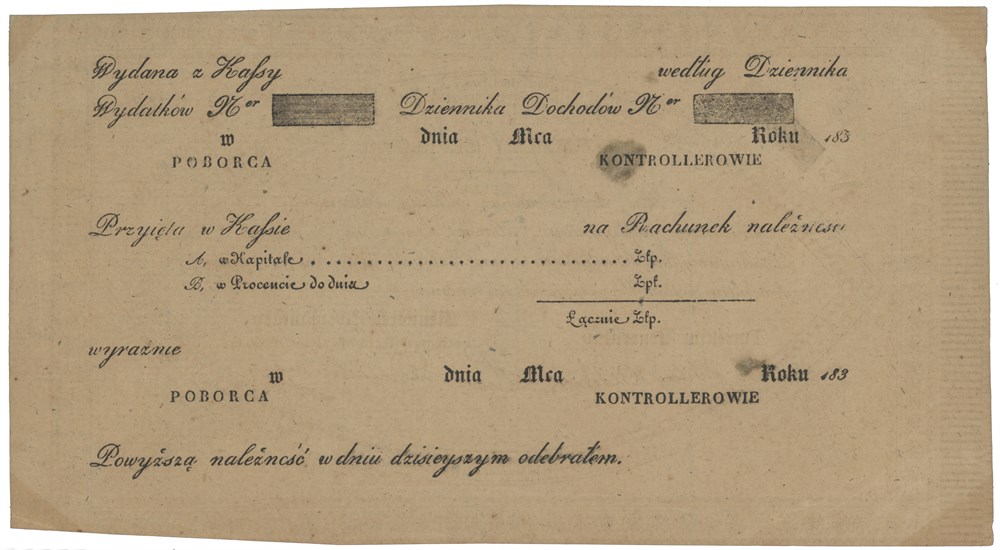 Wydana z Kassy według Dziennika
Wydatków Ner Dziennika Dochodów Ner
w dnia Mca Roku 183
POBORCA KONTROLLEROWIE
Przyięta w Kassie na Rachunek należnosci
A, w Kapitale . . . . . . . . . . . . . . . . . . . . . . . . . . . . . . . . Złp.
B, w Procencie do dnia Zpł.
Łącznie Złp.
wyraznie
w dnia Mca Roku 183
POBORCA KONTROLLEROWIE
Powyższą należncść w dniu dzisieyszym odebrałem.